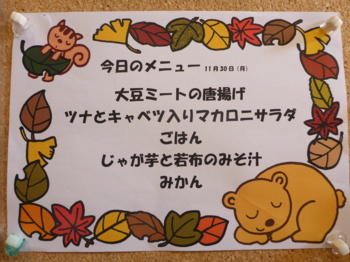 今日のメニュー 11月30日(月)
大豆ミートの唐揚げ
ツナとキャベツ入りマカロニサラダ
ごはん
じゃが芋と若布のみそ汁
みかん